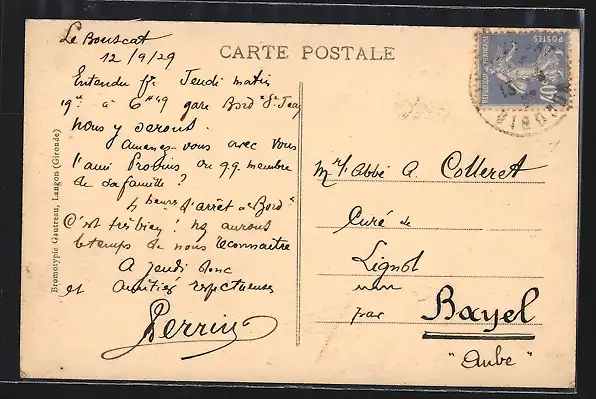 CARTE POSTALE
Le Bouscat
12/9/29
Entendu pr Jeudi matin
19 à 6h49 gare Bordx St Jean
nous y serons.
Amenez-vous avec vous
l'ami Provins ou qq membre
de sa famille ?
4 heures d'arrêt à Bordx
C'est très bien ! ns aurons
le temps de nous reconnaître
A jeudi donc
et Amitiés respectueuses
Perrin
Mr l'Abbé A. Colleret
Curé de
Lignol
par Bayel
"Aube"
Bromotypie Gautreau, Langon (Gironde)
REPUBLIQUE FRANÇAISE
POSTES
40c